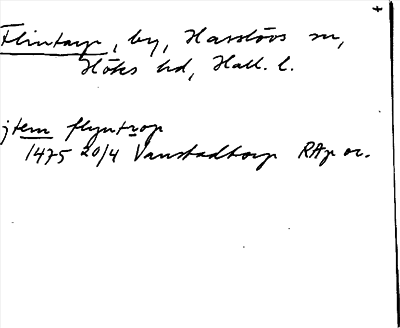 Flintarp, by, Hasslövs sn,
Höks hd, Hall. l.
jtem flyntrop
1475 20/4 Vanstadtorp RAp or.